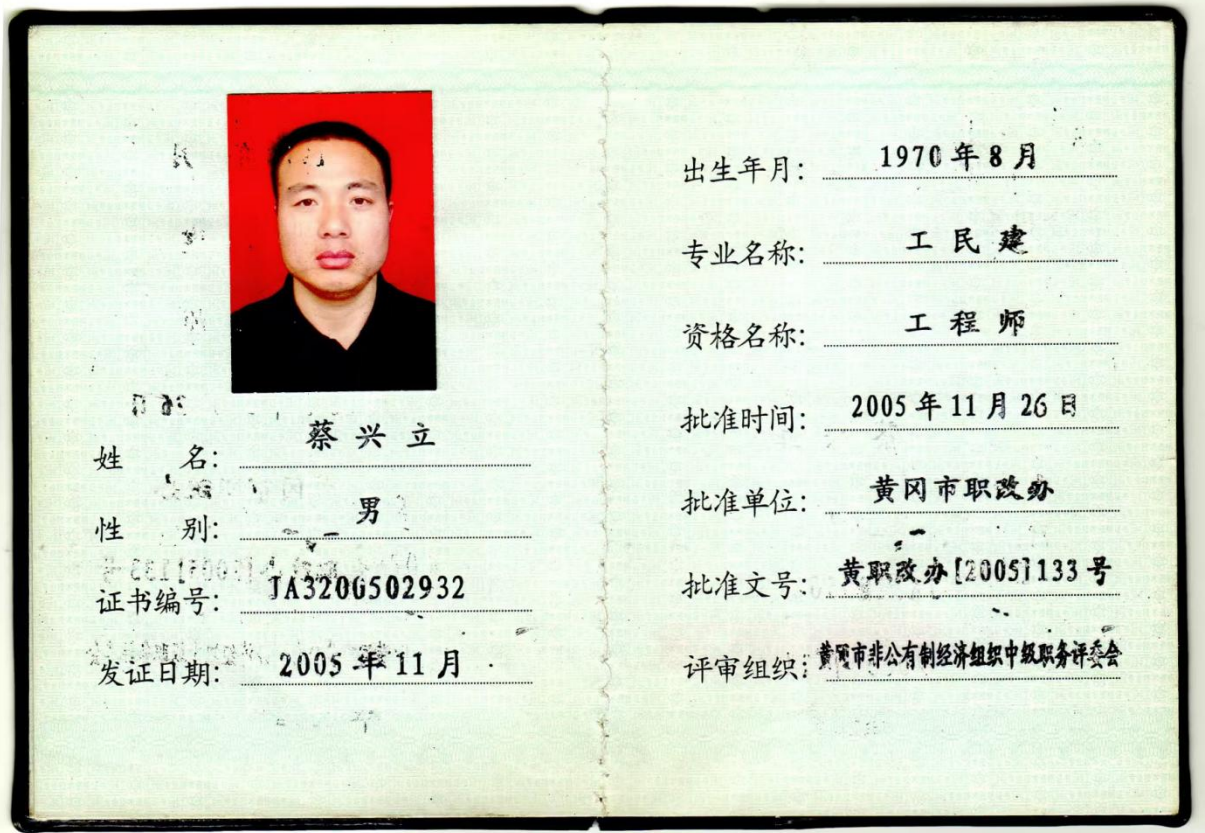 姓 名: 蔡兴立
性 别: 男
证书编号: JA3200502932
发证日期: 2005年11月
出生年月: 1970年8月
专业名称: 工民建
资格名称: 工程师
批准时间: 2005年11月26日
批准单位: 黄冈市职改办
批准文号: 黄职改办[2005]133号
评审组织: 黄冈市非公有制经济组织中级职务评委会